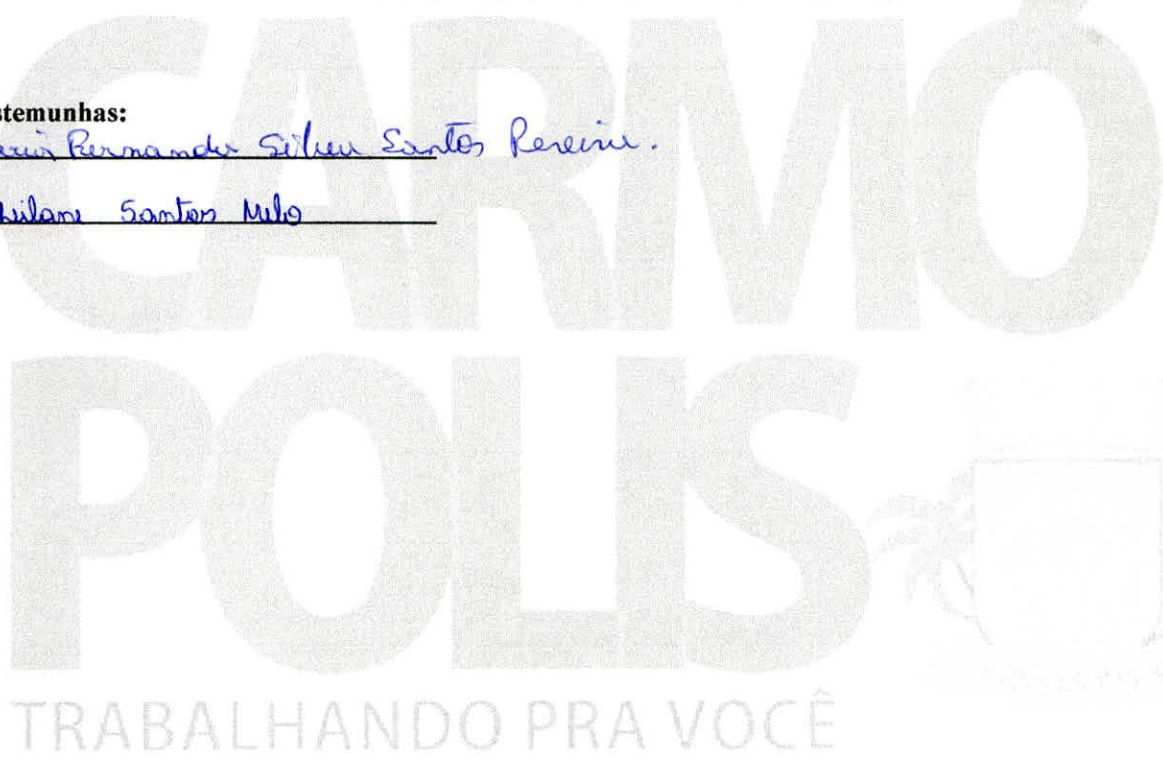 stemunhas:
Fernanda Silva Santos Pereira.
Santos Melo
CARMÓ
POLIS
TRABALHANDO PRA VOCÊ